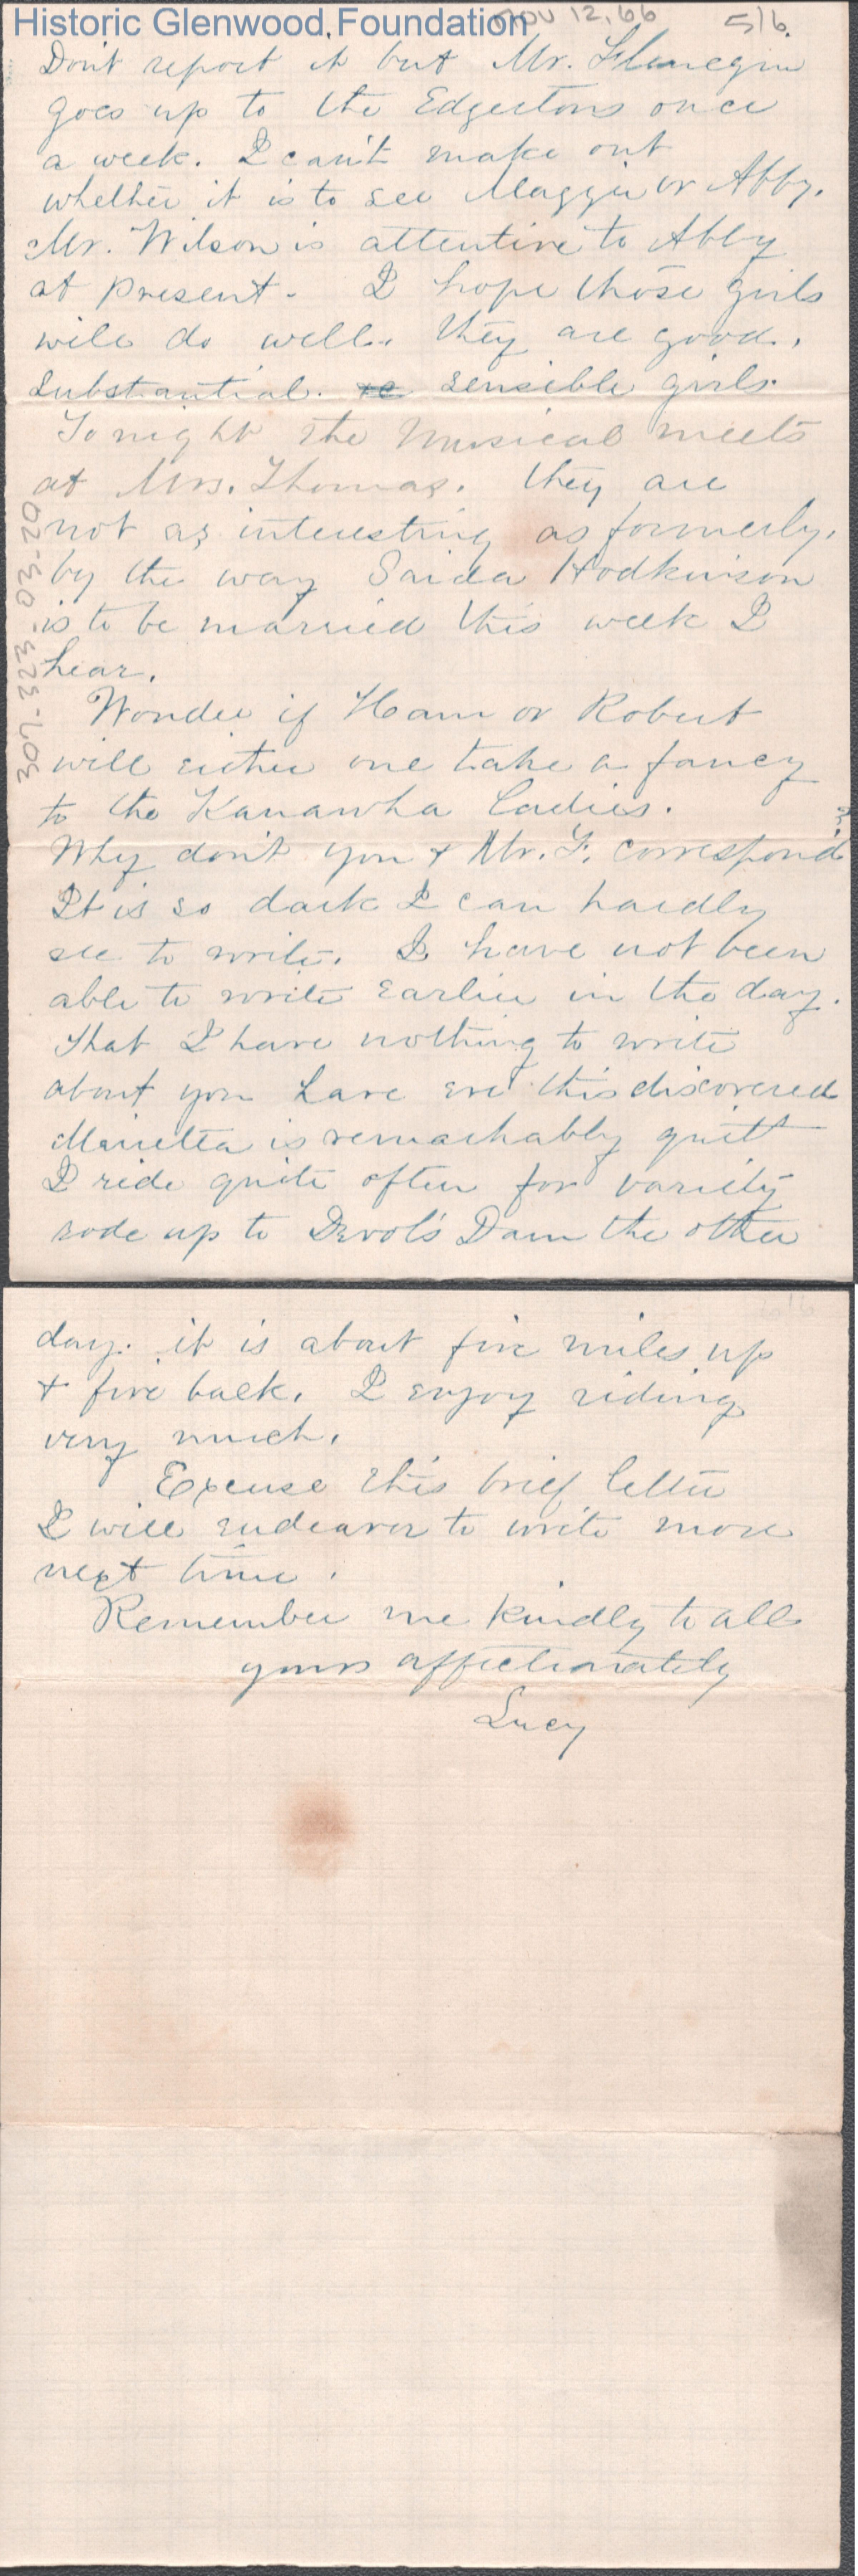 Historic Glenwood Foundation
Nov 12, 66
5/6.
Don't report it but Mr. Flanegin
goes up to the Edgertons once
a week. I can't make out
whether it is to see Maggie or Abby.
Mr. Wilson is attentive to Abby
at present. I hope those girls
will do well. they are good,
substantial. se sensible girls.
Tonight the Musical meets
at Mrs. Thomas. they are
not as interesting as formerly.
by the way Saida Hodkinson
is to be married this week I
hear.
Wonder if Ham or Robert
will either one take a fancy
to the Kanawha ladies.
Why don't you & Mr. F. correspond?
It is so dark I can hardly
see to write. I have not been
able to write earlier in the day.
that I have nothing to write
about you have ere this discovered
Marietta is remarkably quiet
I ride quite often for variety
rode up to Devol's Dam the other
307-323-030-20
day. it is about five miles up
& five back. I enjoy riding
very much.
Excuse this brief letter
I will endeavor to write more
next time.
Remember me kindly to all
yours affectionately
Lucy